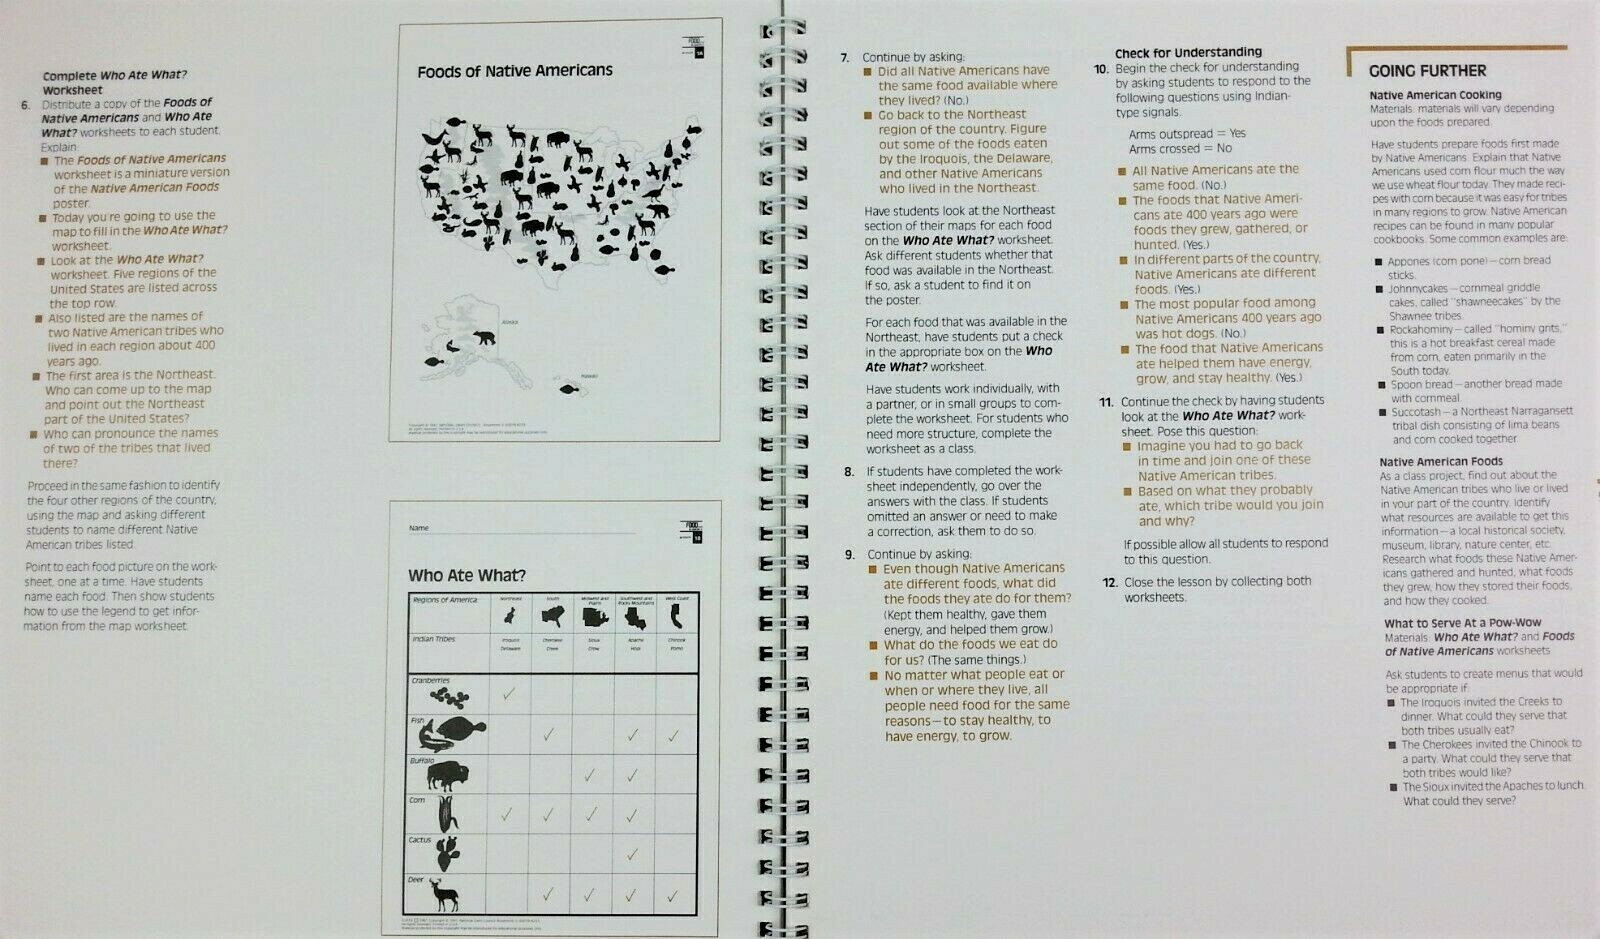 Complete Who Ate What?
Worksheet
6. Distribute a copy of the Foods of
Native Americans and Who Ate
What? worksheets to each student.
Explain:
■ The Foods of Native Americans
worksheet is a miniature version
of the Native American Foods
poster.
■ Today you're going to use the
map to fill in the Who Ate What?
worksheet.
■ Look at the Who Ate What?
worksheet. Five regions of the
United States are listed across
the top row.
■ Also listed are the names of
two Native American tribes who
lived in each region about 400
years ago.
■ The first area is the Northeast.
Who can come up to the map
and point out the Northeast
part of the United States?
■ Who can pronounce the names
of two of the tribes that lived
there?
Proceed in the same fashion to identify
the four other regions of the country,
using the map and asking different
students to name different Native
American tribes listed.
Point to each food picture on the work-
sheet, one at a time. Have students
name each food. Then show students
how to use the legend to get infor-
mation from the map worksheet.
FOOD
1A
Foods of Native Americans
Alaska
Hawaii
Name
FOOD
1B
Who Ate What?
Regions of America: Northeast South Midwest and Plains Southwest and Rocky Mountains West Coast
Indian Tribes: Iroquois Cherokee Sioux Apache Chinook
Delaware Creek Crow Hopi Pomo
Cranberries ✓
Fish ✓ ✓ ✓
Buffalo ✓ ✓
Corn ✓ ✓ ✓ ✓
Cactus ✓
Deer ✓ ✓ ✓ ✓
7. Continue by asking:
■ Did all Native Americans have
the same food available where
they lived? (No.)
■ Go back to the Northeast
region of the country. Figure
out some of the foods eaten
by the Iroquois, the Delaware,
and other Native Americans
who lived in the Northeast.
Have students look at the Northeast
section of their maps for each food
on the Who Ate What? worksheet.
Ask different students whether that
food was available in the Northeast.
If so, ask a student to find it on
the poster.
For each food that was available in the
Northeast, have students put a check
in the appropriate box on the Who
Ate What? worksheet.
Have students work individually, with
a partner, or in small groups to com-
plete the worksheet. For students who
need more structure, complete the
worksheet as a class.
8. If students have completed the work-
sheet independently, go over the
answers with the class. If students
omitted an answer or need to make
a correction, ask them to do so.
9. Continue by asking:
■ Even though Native Americans
ate different foods, what did
the foods they ate do for them?
(Kept them healthy, gave them
energy, and helped them grow.)
■ What do the foods we eat do
for us? (The same things.)
■ No matter what people eat or
when or where they live, all
people need food for the same
reasons—to stay healthy, to
have energy, to grow.
Check for Understanding
10. Begin the check for understanding
by asking students to respond to the
following questions using Indian-
type signals.
Arms outspread = Yes
Arms crossed = No
■ All Native Americans ate the
same food. (No.)
■ The foods that Native Ameri-
cans ate 400 years ago were
foods they grew, gathered, or
hunted. (Yes.)
■ In different parts of the country,
Native Americans ate different
foods. (Yes.)
■ The most popular food among
Native Americans 400 years ago
was hot dogs. (No.)
■ The food that Native Americans
ate helped them have energy,
grow, and stay healthy. (Yes.)
11. Continue the check by having students
look at the Who Ate What? work-
sheet. Pose this question:
■ Imagine you had to go back
in time and join one of these
Native American tribes.
■ Based on what they probably
ate, which tribe would you join
and why?
If possible allow all students to respond
to this question.
12. Close the lesson by collecting both
worksheets.
GOING FURTHER
Native American Cooking
Materials: materials will vary depending
upon the foods prepared.
Have students prepare foods first made
by Native Americans. Explain that Native
Americans used corn flour much the way
we use wheat flour today. They made reci-
pes with corn because it was easy for tribes
in many regions to grow. Native American
recipes can be found in many popular
cookbooks. Some common examples are:
■ Appones (corn pone)—corn bread
sticks.
■ Johnnycakes—cornmeal griddle
cakes, called "shawneecakes" by the
Shawnee tribes.
■ Rockahominy—called "hominy grits,"
this is a hot breakfast cereal made
from corn, eaten primarily in the
South today.
■ Spoon bread—another bread made
with cornmeal.
■ Succotash—a Northeast Narragansett
tribal dish consisting of lima beans
and corn cooked together.
Native American Foods
As a class project, find out about the
Native American tribes who live or lived
in your part of the country. Identify
what resources are available to get this
information—a local historical society,
museum, library, nature center, etc.
Research what foods these Native Amer-
icans gathered and hunted, what foods
they grew, how they stored their foods,
and how they cooked.
What to Serve At a Pow-Wow
Materials: Who Ate What? and Foods
of Native Americans worksheets
Ask students to create menus that would
be appropriate if:
■ The Iroquois invited the Creeks to
dinner. What could they serve that
both tribes usually eat?
■ The Cherokees invited the Chinook to
a party. What could they serve that
both tribes would like?
■ The Sioux invited the Apaches to lunch.
What could they serve?